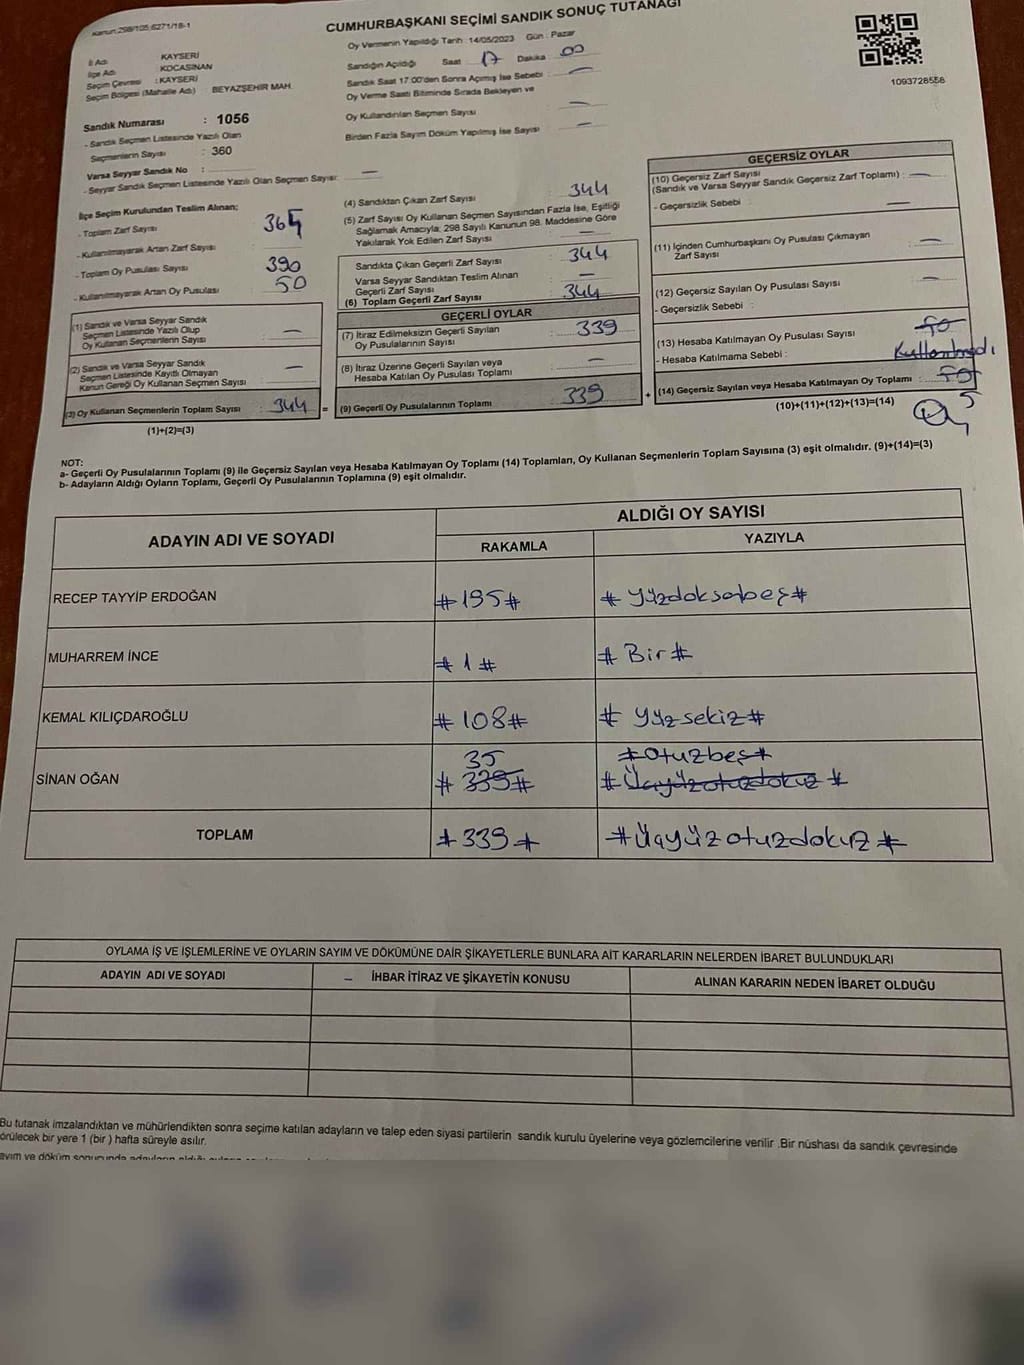 Kanun:298/105;6271/18-1
CUMHURBAŞKANI SEÇİMİ SANDIK SONUÇ TUTANAĞI
İl Adı KAYSERİ
İlçe Adı KOCASİNAN
Seçim Çevresi : KAYSERİ
Seçim Bölgesi (Mahalle Adı) BEYAZŞEHİR MAH.
Oy Vermenin Yapıldığı Tarih : 14/05/2023 Gün : Pazar
Sandığın Açıldığı Saat 17 Dakika 00
Sandık Saat 17:00'den Sonra Açılmış İse Sebebi : —
Oy Verme Saati Bitiminde Sırada Bekleyen ve
Oy Kullandırılan Seçmen Sayısı : —
Birden Fazla Sayım Döküm Yapılmış İse Sayısı : —
1093728558
Sandık Numarası : 1056
- Sandık Seçmen Listesinde Yazılı Olan
Seçmenlerin Sayısı : 360
Varsa Seyyar Sandık No :
- Seyyar Sandık Seçmen Listesinde Yazılı Olan Seçmen Sayısı: —
İlçe Seçim Kurulundan Teslim Alınan;
- Toplam Zarf Sayısı : 365
- Kullanılmayarak Artan Zarf Sayısı :
- Toplam Oy Pusulası Sayısı : 390
- Kullanılmayarak Artan Oy Pusulası : 50
(1) Sandık ve Varsa Seyyar Sandık
Seçmen Listesinde Yazılı Olup
Oy Kullanan Seçmenlerin Sayısı : —
(2) Sandık ve Varsa Seyyar Sandık
Seçmen Listesinde Kayıtlı Olmayan
Kanun Gereği Oy Kullanan Seçmen Sayısı : —
(3) Oy Kullanan Seçmenlerin Toplam Sayısı : 344 =
(1)+(2)=(3)
(4) Sandıktan Çıkan Zarf Sayısı : 344
(5) Zarf Sayısı Oy Kullanan Seçmen Sayısından Fazla İse, Eşitliği
Sağlamak Amacıyla; 298 Sayılı Kanunun 98. Maddesine Göre
Yakılarak Yok Edilen Zarf Sayısı : —
Sandıkta Çıkan Geçerli Zarf Sayısı : 344
Varsa Seyyar Sandıktan Teslim Alınan
Geçerli Zarf Sayısı : —
(6) Toplam Geçerli Zarf Sayısı : 344
GEÇERLİ OYLAR
(7) İtiraz Edilmeksizin Geçerli Sayılan
Oy Pusulalarının Sayısı : 339
(8) İtiraz Üzerine Geçerli Sayılan veya
Hesaba Katılan Oy Pusulası Toplamı : —
(9) Geçerli Oy Pusulalarının Toplamı : 339 +
GEÇERSİZ OYLAR
(10) Geçersiz Zarf Sayısı
(Sandık ve Varsa Seyyar Sandık Geçersiz Zarf Toplamı) : —
- Geçersizlik Sebebi : —
(11) İçinden Cumhurbaşkanı Oy Pusulası Çıkmayan
Zarf Sayısı : —
(12) Geçersiz Sayılan Oy Pusulası Sayısı : —
- Geçersizlik Sebebi :
(13) Hesaba Katılmayan Oy Pusulası Sayısı : 50
- Hesaba Katılmama Sebebi : Kullanılmadı
(14) Geçersiz Sayılan veya Hesaba Katılmayan Oy Toplamı : 5
(10)+(11)+(12)+(13)=(14)
NOT:
a- Geçerli Oy Pusulalarının Toplamı (9) ile Geçersiz Sayılan veya Hesaba Katılmayan Oy Toplamı (14) Toplamları, Oy Kullanan Seçmenlerin Toplam Sayısına (3) eşit olmalıdır. (9)+(14)=(3)
b- Adayların Aldığı Oyların Toplamı, Geçerli Oy Pusulalarının Toplamına (9) eşit olmalıdır.
ADAYIN ADI VE SOYADI ALDIĞI OY SAYISI
RAKAMLA YAZIYLA
RECEP TAYYİP ERDOĞAN #195# #Yüzdoksanbeş#
MUHARREM İNCE #1# #Bir#
KEMAL KILIÇDAROĞLU #108# #Yüzsekiz#
35 #Otuzbeş#
SİNAN OĞAN #339# #Üçyüzotuzdokuz#
TOPLAM #339# #Üçyüzotuzdokuz#
OYLAMA İŞ VE İŞLEMLERİNE VE OYLARIN SAYIM VE DÖKÜMÜNE DAİR ŞİKAYETLERLE BUNLARA AİT KARARLARIN NELERDEN İBARET BULUNDUKLARI
ADAYIN ADI VE SOYADI – İHBAR İTİRAZ VE ŞİKAYETİN KONUSU ALINAN KARARIN NEDEN İBARET OLDUĞU
Bu tutanak imzalandıktan ve mühürlendikten sonra seçime katılan adayların ve talep eden siyasi partilerin sandık kurulu üyelerine veya gözlemcilerine verilir .Bir nüshası da sandık çevresinde
örülecek bir yere 1 (bir ) hafta süreyle asılır.